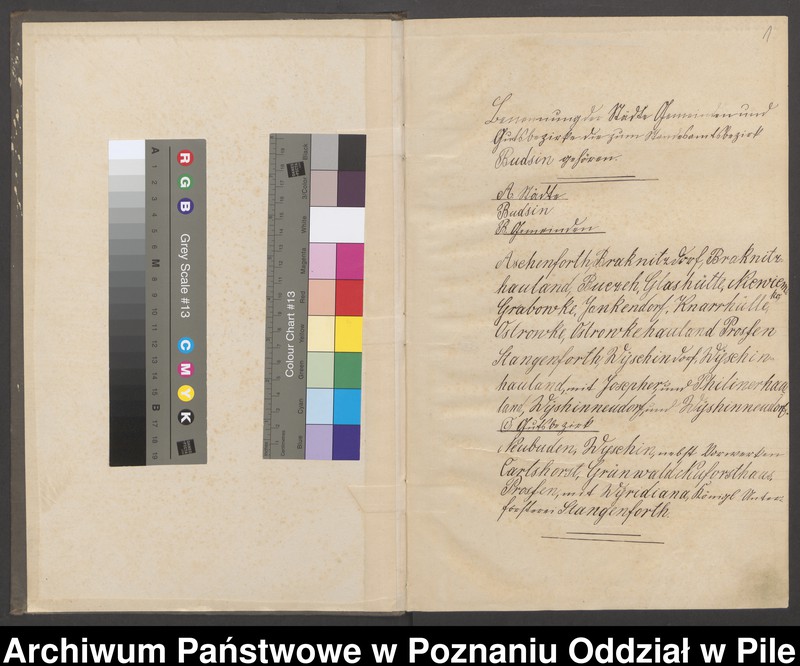 A 1 2 3 4 5 6 M 8 9 10 11 12 13 14 15 B 17 18 19
R G B
Grey Scale #13
C M Y K
Colour Chart #13
Black
3/Color
White
Magenta
Red
Yellow
Green
Cyan
Blue
1
Benennung der Städte Gemeinden und
Gutsbezirke die zum Standesamtsbezirk
Budsin gehören.
A Städte
Budsin
B Gemeinden
Aschenforth, Braknitzdorf, Braknitz-
hauland, Buczeh, Glashütte,
Grabowke, Jankendorf, Knarrhütte,
Ostrowke, Ostrowkehauland Prosfen
Stangenforth, Wyschindorf, Wyschin-
hauland, mit und
land, Wyshinneudorf, und Wyshinneudorf.
C Gutsbezirk
Neubuden, Wyschin, nebst Vorwerken
Carlshorst, Grünwald
Prosfen, mit Königl Unter-
försterei Stangenforth.
Archiwum Państwowe w Poznaniu Oddział w Pile